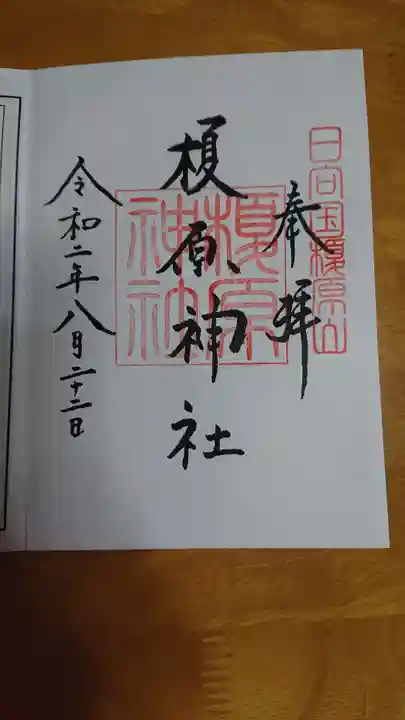 日向国榎原山
奉拝
榎原神社
榎原神社
令和二年八月二十二日